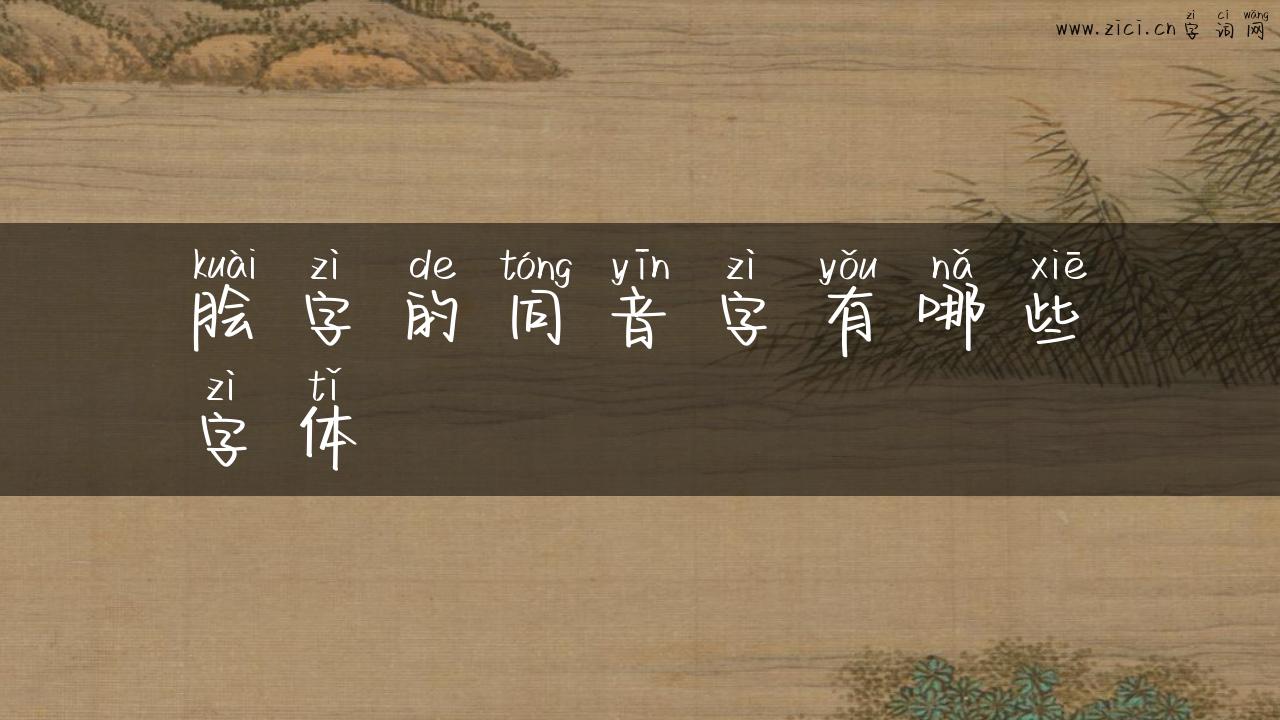 zì cí wǎng
www.zici.cn字词网
kuài zì de tóng yīn zì yǒu nǎ xiē
脍字的同音字有哪些
zì tǐ
字体